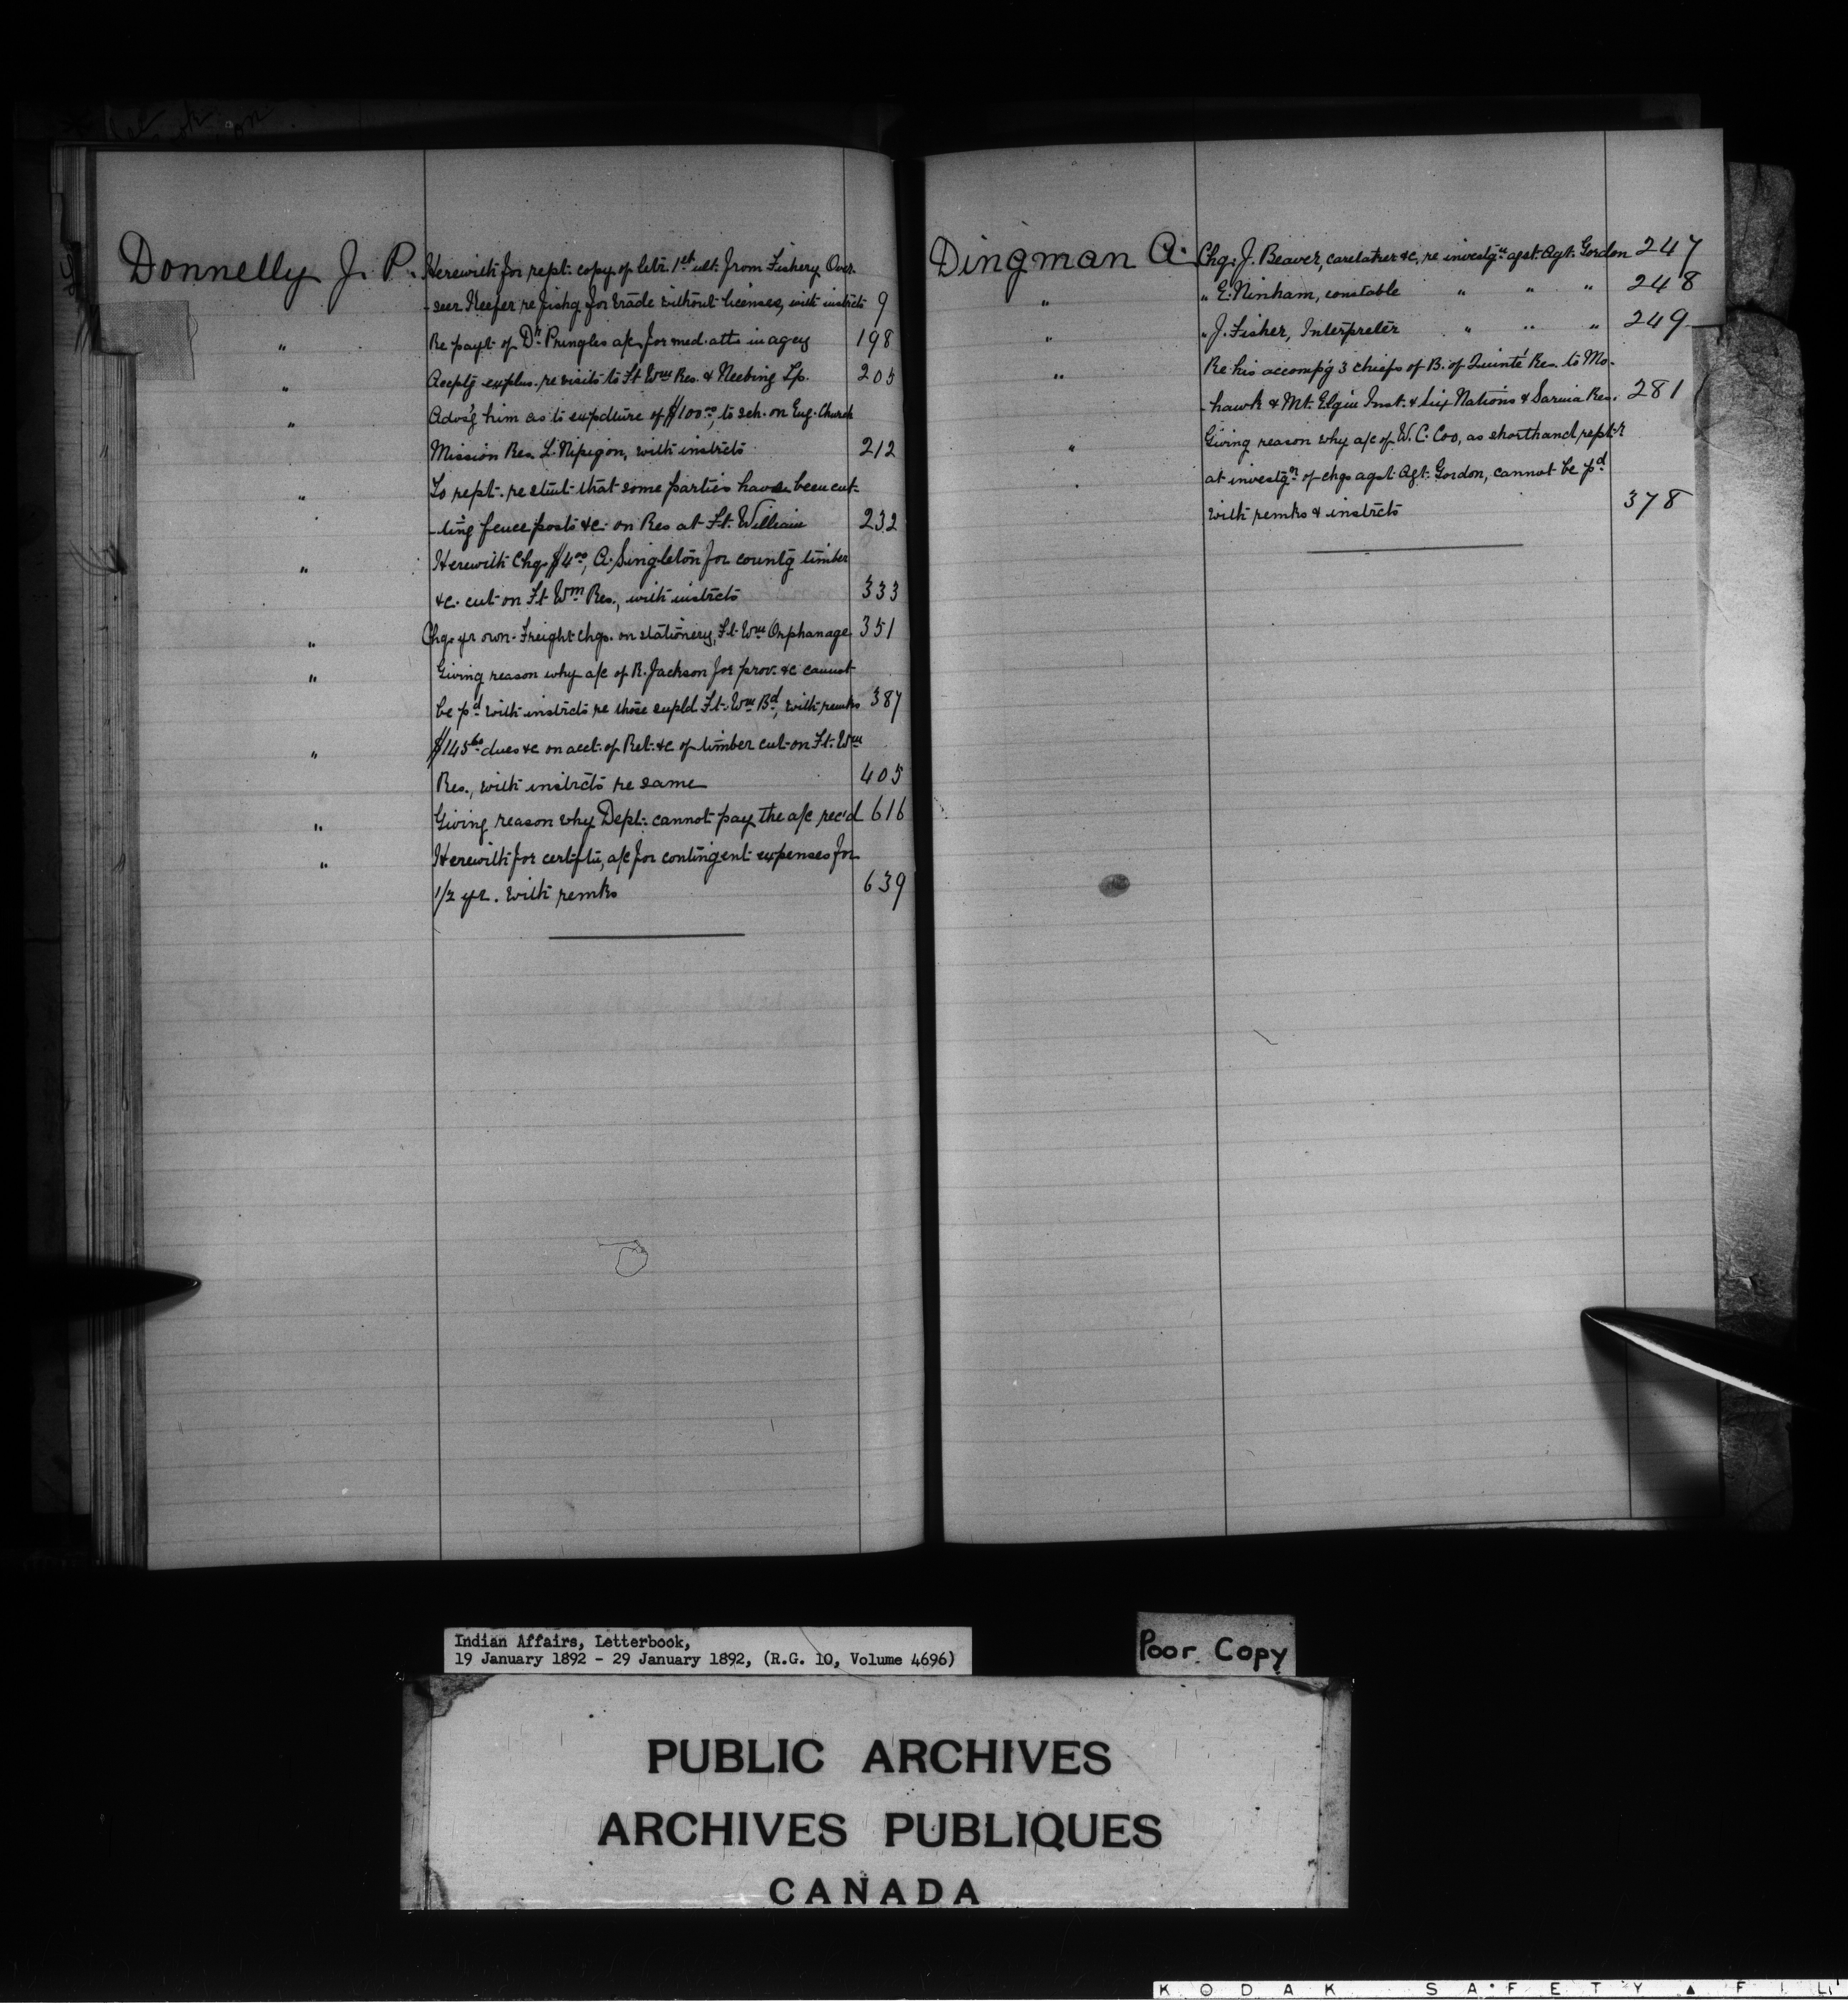 Donnelly J. P. Herewith for rept. copy of letr. 1st ult. from Fishery Over-
-seer Keefer re fishg for trade without licenses, with instrcts 9
" Re payt. of Dr. Pringles a/c for med. atts in agcy 198
" Acceptg explns. re visits to Ft Wm Res. & Neebing Tp. 205
" Advs'g him as to expdture of $100.00, to sch. on Eng. Church
Mission Res. L. Nipigon, with instrcts 212
" To rept. re stmt that some parties have been cut-
-ting fence posts &c. on Res at Ft. William 232
" Herewith Chq. $4.00, A. Singleton for countg timber
&c. cut on Ft Wm Res., with instrcts 333
" Chq. yr own. Freight chgs. on stationery, Ft. Wm Orphanage 351
" Giving reason why a/c of R. Jackson for prov. &c cannot
be pd with instrcts re those supld Ft. Wm Bd, with remks 387
" $145.60 dues &c on acct. of Ret. &c of timber cut on Ft. Wm
Res., with instrcts re same 405
" Giving reason why Dept. cannot pay the a/c rec'd 616
" Herewith for certifte, a/c for contingent expenses for
1/2 yr. with remks 639
Dingman A. Chq. J. Beaver, caretaker &c, re investgn agst. Agt. Gordon 247
" " E. Ninham, constable " " " 248
" " J. Fisher, Interpreter " " " 249
" Re his accompg 3 chiefs of B. of Quinté Res. to Mo-
-hawk & Mt. Elgin Inst. & Six Nations & Sarnia Res. 281
" Giving reason why a/c of W. C. Coo, as shorthand rept-r
at investgn of chgs agst Agt. Gordon, cannot be pd
with remks & instrcts 378
Indian Affairs, Letterbook,
19 January 1892 - 29 January 1892, (R.G. 10, Volume 4696)
Poor Copy
PUBLIC ARCHIVES
ARCHIVES PUBLIQUES
CANADA
KODAK SAFETY ▲ FIL